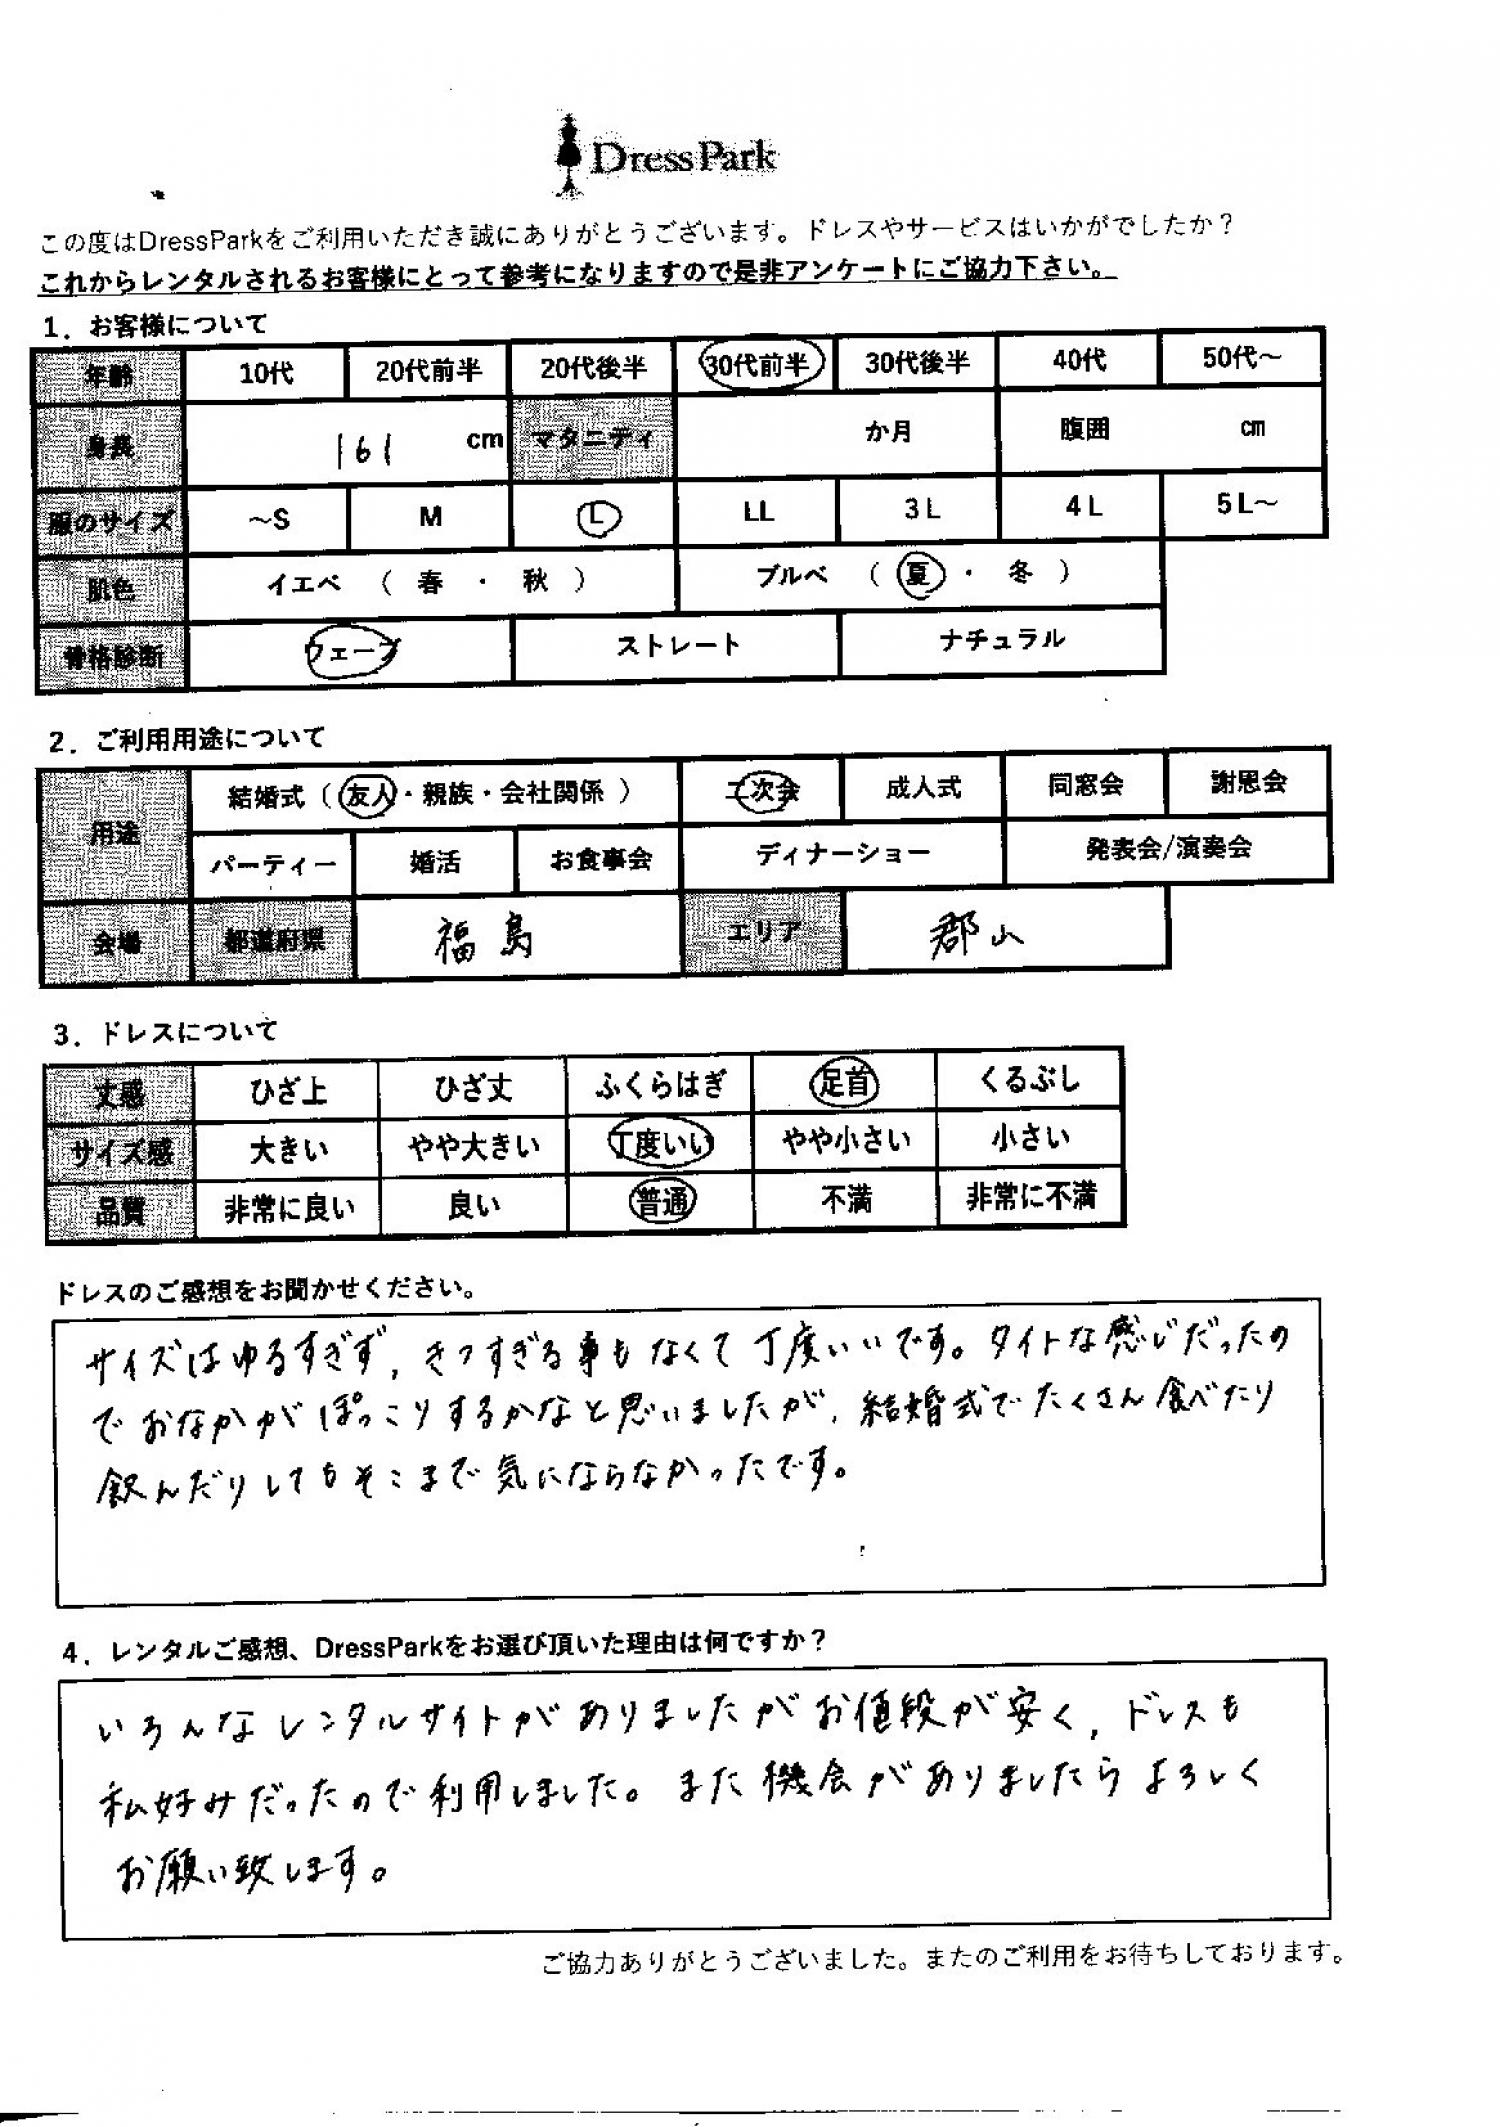 DressPark
この度はDressParkをご利用いただき誠にありがとうございます。ドレスやサービスはいかがでしたか？
これからレンタルされるお客様にとって参考になりますので是非アンケートにご協力下さい。
1．お客様について
年齢 10代 20代前半 20代後半 30代前半 30代後半 40代 50代～
身長 161 cm マタニティ か月 腹囲 cm
服のサイズ ～S M L LL 3L 4L 5L～
肌色 イエベ （ 春 ・ 秋 ） ブルベ （ 夏 ・ 冬 ）
骨格診断 ウェーブ ストレート ナチュラル
2．ご利用用途について
用途 結婚式（ 友人・親族・会社関係 ） 二次会 成人式 同窓会 謝恩会
パーティー 婚活 お食事会 ディナーショー 発表会/演奏会
会場 都道府県 福島 エリア 郡山
3．ドレスについて
丈感 ひざ上 ひざ丈 ふくらはぎ 足首 くるぶし
サイズ感 大きい やや大きい 丁度いい やや小さい 小さい
品質 非常に良い 良い 普通 不満 非常に不満
ドレスのご感想をお聞かせください。
サイズはゆるすぎず，きつすぎる事もなくて丁度いいです。タイトな感じだったの
でおなかがぽっこりするかなと思いましたが，結婚式でたくさん食べたり
飲んだりしてもそこまで気にならなかったです。
4．レンタルご感想、DressParkをお選び頂いた理由は何ですか？
いろんなレンタルサイトがありましたがお値段が安く，ドレスも
私好みだったので利用しました。また機会がありましたらよろしく
お願い致します。
ご協力ありがとうございました。またのご利用をお待ちしております。